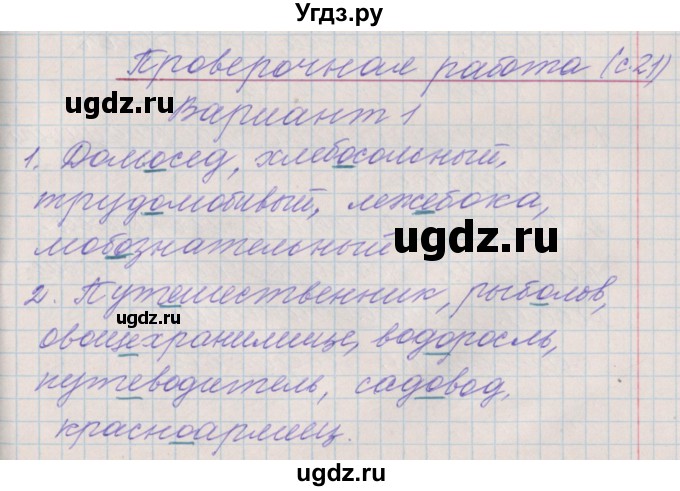 Угдз.ру
Проверочная работа (с.21)
ugdz.ru
Вариант 1
1. Домосед, хлебосольный,
трудолюбивый, лежебока,
ugdz.ru
любознательный.
2. Путешественник, рыболов,
ugdz.ru
овощехранилище, водоросль,
ugdz.ru
путеводитель, садовод,
красноармеец.
ugdz.ru